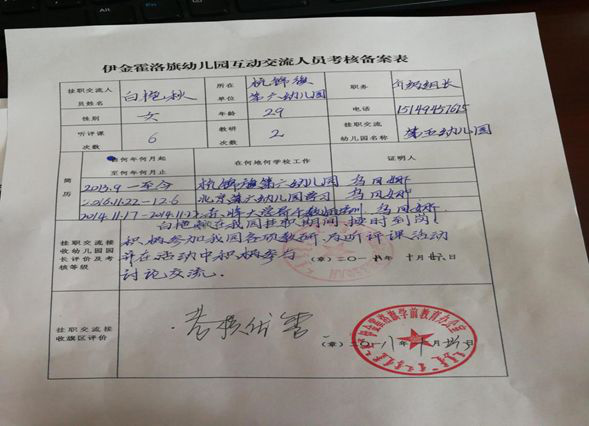 伊金霍洛旗幼儿园互动交流人员考核备案表
挂职交流人员姓名 白艳秋 所在单位 杭锦旗第六幼儿园 职务 教研组长
性别 女 年龄 29 电话 15149457625
听评课次数 6 教研次数 2 挂职交流幼儿园名称 第五幼儿园
简历
自何年何月起至何年何月止 在何地何学校工作 证明人
2013.9 一至今 杭锦旗第六幼儿园 乌凤
2016.11.22-12.6 北京第六幼儿园学习 乌凤
2014.11.17-2014.11.
挂职交流接收幼儿园园长评价及考核等级
白艳秋在我园挂职期间按时到岗！
积极参加我园各项教研、及听评课活动
并在活动中积极参与
讨论交流.
(章) 二〇一八年十月廿六日
挂职交流接收旗区评价
考核优秀
(章) 二〇一八年十月廿六日
伊金霍洛旗学前教育办公室